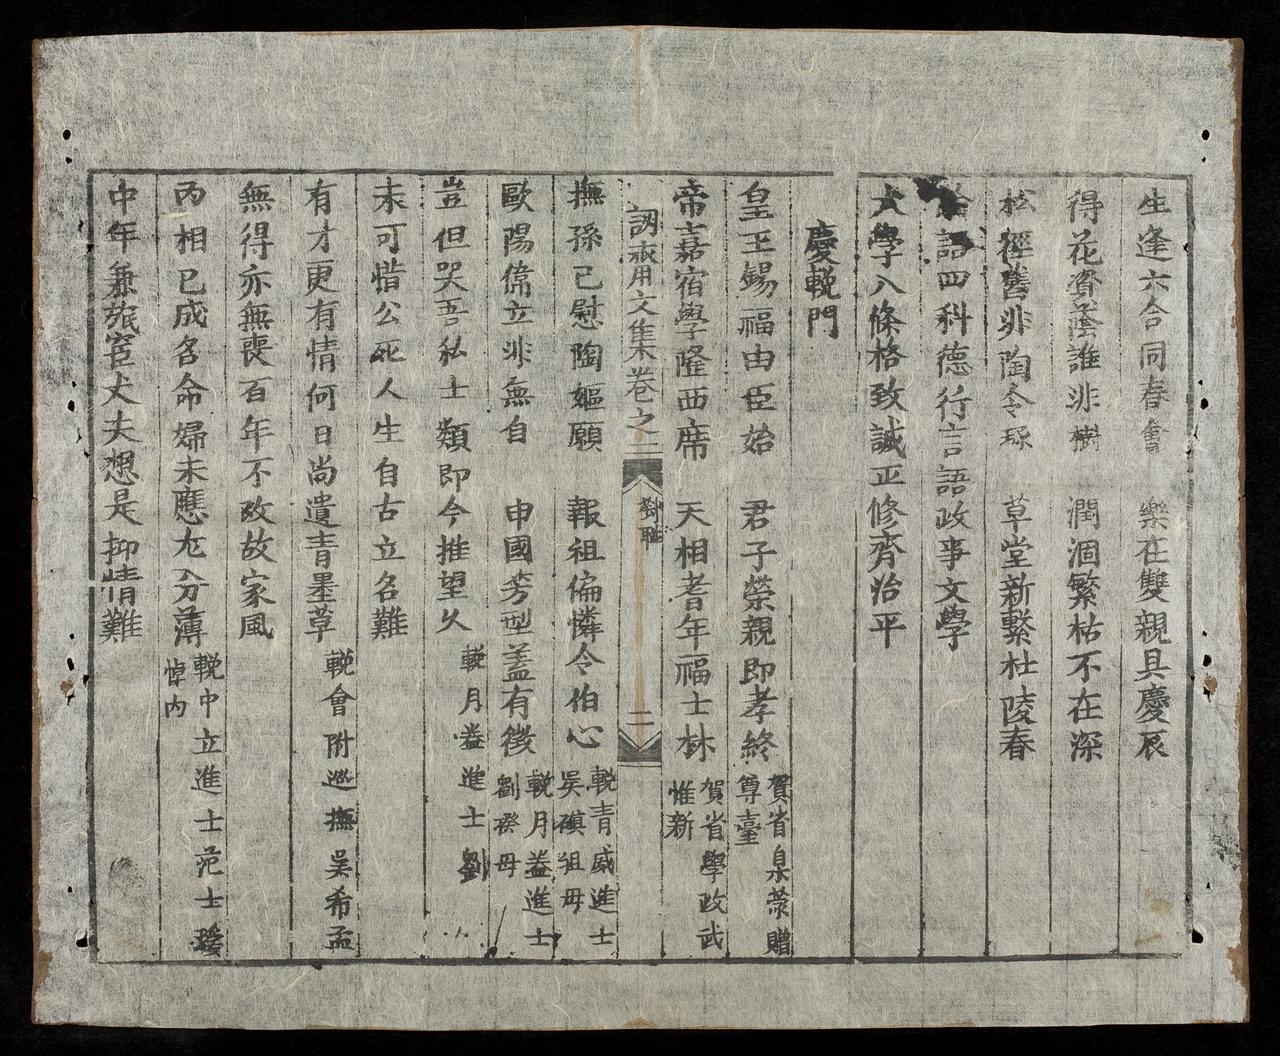 生逢六合同春會　樂在雙親具慶辰
得花資蔭誰非樹　潤涸繁枯不在深
松徑舊非陶令琢　草堂新繫杜陵春
語四科德行言語政事文學
大學八條格致誠正修齊治平
慶輓門
皇王錫福由臣始　君子榮親即孝終
賀省臬蒙贈
尊臺
帝嘉宿學隆西席　天相耆年福士林
賀省學政武
惟新
詞衣用文集卷之二　對聯　二
撫孫已慰陶嫗願　報祖偏憐令伯心
輓青威進士
吳祖母
歐陽偉立非無自　申國芳型蓋有徵
輓月盎進士
劉母
豈但哭吾私士類即今推望久
輓月盎進士劉
未可惜公死人生自古立名難
有才更有情何日尚遺青墨草
輓會附巡撫吳希孟
無得亦無喪百年不改故家風
丙相已成名命婦未應尤分薄
輓中立進士范士
悼內
中年兼旅宦丈夫想是抑情難